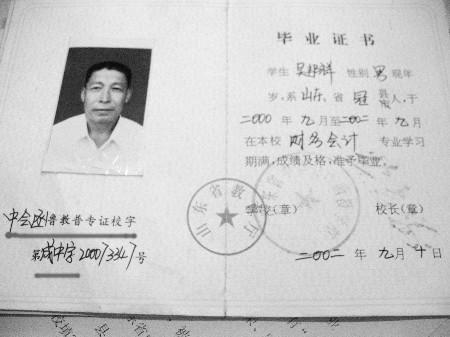 毕业证书
学生 吴邦祥 性别 男 现年
岁,系 山东 省 冠 县 人,于
2000 年 九 月至 二00二 年 九 月
在本校 财务会计 专业学习
期满,成绩及格,准予毕业。
学校(章) 校长(章)
二00二 年 九 月 十 日
中会函鲁教普专证校字
第 成中字20007334 号
山东省教育厅